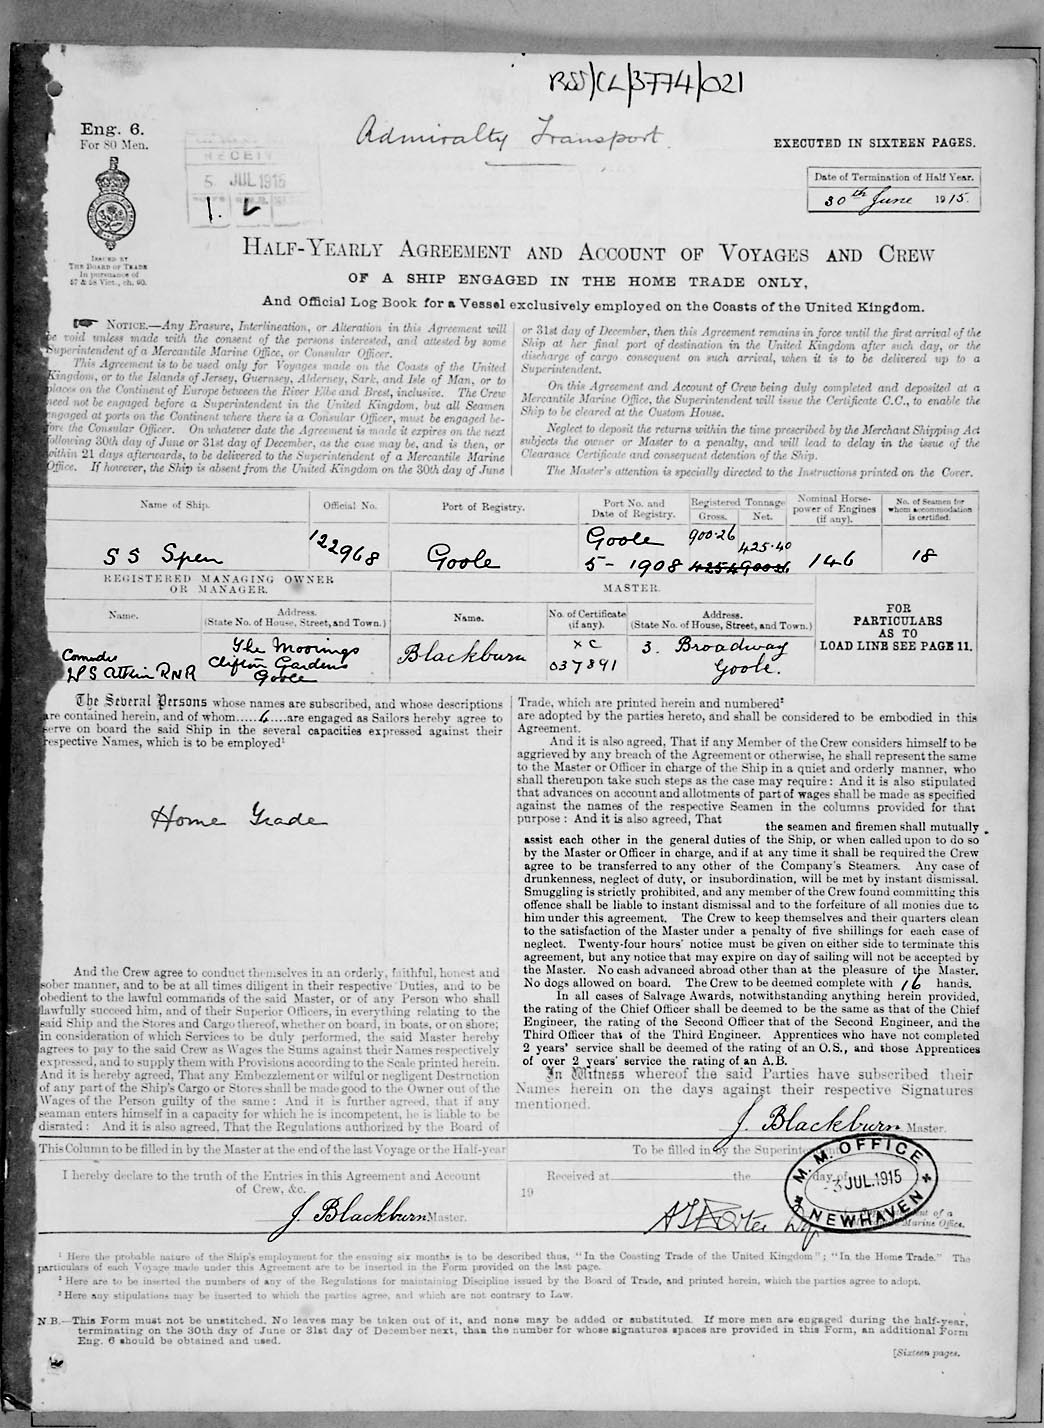 RSS/CL/3774/021
Admiralty Transport.
Eng. 6.
For 80 Men.
EXECUTED IN SIXTEEN PAGES.
Date of Termination of Half Year.
30th June 1915.
5 JUL 1915
1.
ISSUED BY
THE BOARD OF TRADE
In pursuance of
57 & 58 Vict., ch. 60.
HALF-YEARLY AGREEMENT AND ACCOUNT OF VOYAGES AND CREW
OF A SHIP ENGAGED IN THE HOME TRADE ONLY,
And Official Log Book for a Vessel exclusively employed on the Coasts of the United Kingdom.
NOTICE.—Any Erasure, Interlineation, or Alteration in this Agreement will
be void unless made with the consent of the persons interested, and attested by some
Superintendent of a Mercantile Marine Office, or Consular Officer.
This Agreement is to be used only for Voyages made on the Coasts of the United
Kingdom, or to the Islands of Jersey, Guernsey, Alderney, Sark, and Isle of Man, or to
places on the Continent of Europe between the River Elbe and Brest, inclusive. The Crew
need not be engaged before a Superintendent in the United Kingdom, but all Seamen
engaged at ports on the Continent where there is a Consular Officer, must be engaged be-
fore the Consular Officer. On whatever date the Agreement is made it expires on the next
following 30th day of June or 31st day of December, as the case may be, and is then, or
within 21 days afterwards, to be delivered to the Superintendent of a Mercantile Marine
Office. If however, the Ship is absent from the United Kingdom on the 30th day of June
or 31st day of December, then this Agreement remains in force until the first arrival of the
Ship at her final port of destination in the United Kingdom after such day, or the
discharge of cargo consequent on such arrival, when it is to be delivered up to a
Superintendent.
On this Agreement and Account of Crew being duly completed and deposited at a
Mercantile Marine Office, the Superintendent will issue the Certificate C.C., to enable the
Ship to be cleared at the Custom House.
Neglect to deposit the returns within the time prescribed by the Merchant Shipping Act
subjects the owner or Master to a penalty, and will lead to delay in the issue of the
Clearance Certificate and consequent detention of the Ship.
The Master's attention is specially directed to the Instructions printed on the Cover.
Name of Ship.
Official No.
Port of Registry.
Port No. and
Date of Registry.
Registered Tonnage
Gross. Net.
Nominal Horse-
power of Engines
(if any).
No. of Seamen for
whom accommodation
is certified.
SS Spen
122968
Goole
Goole
5- 1908
900·26
425·40
146
18
REGISTERED MANAGING OWNER
OR MANAGER.
MASTER.
Name.
Address.
(State No. of House, Street, and Town.)
Name.
No. of Certificate
(if any).
Address.
(State No. of House, Street, and Town.)
FOR
PARTICULARS
AS TO
LOAD LINE SEE PAGE 11.
Atkin RNR
The Moorings
Clifton Gardens
Goole
Blackburn
XC
037891
3. Broadway
Goole.
The Several Persons whose names are subscribed, and whose descriptions
are contained herein, and of whom......6....are engaged as Sailors hereby agree to
serve on board the said Ship in the several capacities expressed against their
respective Names, which is to be employed¹
Home Trade
And the Crew agree to conduct themselves in an orderly, faithful, honest and
sober manner, and to be at all times diligent in their respective Duties, and to be
obedient to the lawful commands of the said Master, or of any Person who shall
lawfully succeed him, and of their Superior Officers, in everything relating to the
said Ship and the Stores and Cargo thereof, whether on board, in boats, or on shore;
in consideration of which Services to be duly performed, the said Master hereby
agrees to pay to the said Crew as Wages the Sums against their Names respectively
expressed, and to supply them with Provisions according to the Scale printed herein.
And it is hereby agreed, That any Embezzlement or wilful or negligent Destruction
of any part of the Ship's Cargo or Stores shall be made good to the Owner out of the
Wages of the Person guilty of the same: And it is further agreed, that if any
seaman enters himself in a capacity for which he is incompetent, he is liable to be
disrated: And it is also agreed, That the Regulations authorized by the Board of
Trade, which are printed herein and numbered²
are adopted by the parties hereto, and shall be considered to be embodied in this
Agreement.
And it is also agreed, That if any Member of the Crew considers himself to be
aggrieved by any breach of the Agreement or otherwise, he shall represent the same
to the Master or Officer in charge of the Ship in a quiet and orderly manner, who
shall thereupon take such steps as the case may require: And it is also stipulated
that advances on account and allotments of part of wages shall be made as specified
against the names of the respective Seamen in the columns provided for that
purpose: And it is also agreed, That
the seamen and firemen shall mutually
assist each other in the general duties of the Ship, or when called upon to do so
by the Master or Officer in charge, and if at any time it shall be required the Crew
agree to be transferred to any other of the Company's Steamers. Any case of
drunkenness, neglect of duty, or insubordination, will be met by instant dismissal.
Smuggling is strictly prohibited, and any member of the Crew found committing this
offence shall be liable to instant dismissal and to the forfeiture of all monies due to
him under this agreement. The Crew to keep themselves and their quarters clean
to the satisfaction of the Master under a penalty of five shillings for each case of
neglect. Twenty-four hours' notice must be given on either side to terminate this
agreement, but any notice that may expire on day of sailing will not be accepted by
the Master. No cash advanced abroad other than at the pleasure of the Master.
No dogs allowed on board. The Crew to be deemed complete with 16 hands.
In all cases of Salvage Awards, notwithstanding anything herein provided,
the rating of the Chief Officer shall be deemed to be the same as that of the Chief
Engineer, the rating of the Second Officer that of the Second Engineer, and the
Third Officer that of the Third Engineer. Apprentices who have not completed
2 years' service shall be deemed of the rating of an O.S., and those Apprentices
of over 2 years' service the rating of an A.B.
In Witness whereof the said Parties have subscribed their
Names herein on the days against their respective Signatures
mentioned.
J. Blackburn Master.
This Column to be filled in by the Master at the end of the last Voyage or the Half-year
I hereby declare to the truth of the Entries in this Agreement and Account
of Crew, &c.
J. Blackburn Master.
To be filled in by the Superintendent
Received at the day of
19
M. M. OFFICE
-3 JUL. 1915
NEWHAVEN
Marine Office.
¹ Here the probable nature of the Ship's employment for the ensuing six months is to be described thus, "In the Coasting Trade of the United Kingdom"; "In the Home Trade." The
particulars of each Voyage made under this Agreement are to be inserted in the Form provided on the last page.
² Here are to be inserted the numbers of any of the Regulations for maintaining Discipline issued by the Board of Trade, and printed herein, which the parties agree to adopt.
³ Here any stipulations may be inserted to which the parties agree, and which are not contrary to Law.
N.B.—This Form must not be unstitched. No leaves may be taken out of it, and none may be added or substituted. If more men are engaged during the half-year,
terminating on the 30th day of June or 31st day of December next, than the number for whose signatures spaces are provided in this Form, an additional Form
Eng. 6 should be obtained and used.
[Sixteen pages.